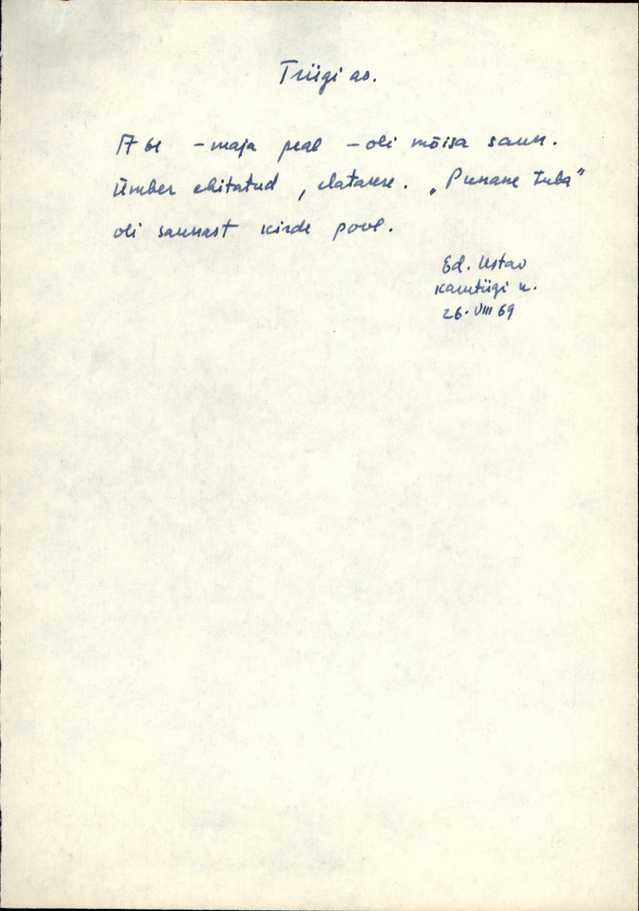 Triigi as.
1761 - maja peal - oli mõisa saun.
Ümber ehitatud, elatakse. „Punane tuba"
oli saunast kirde pool.
Ed. Ustav
Karutiigi k.
26. VIII 69